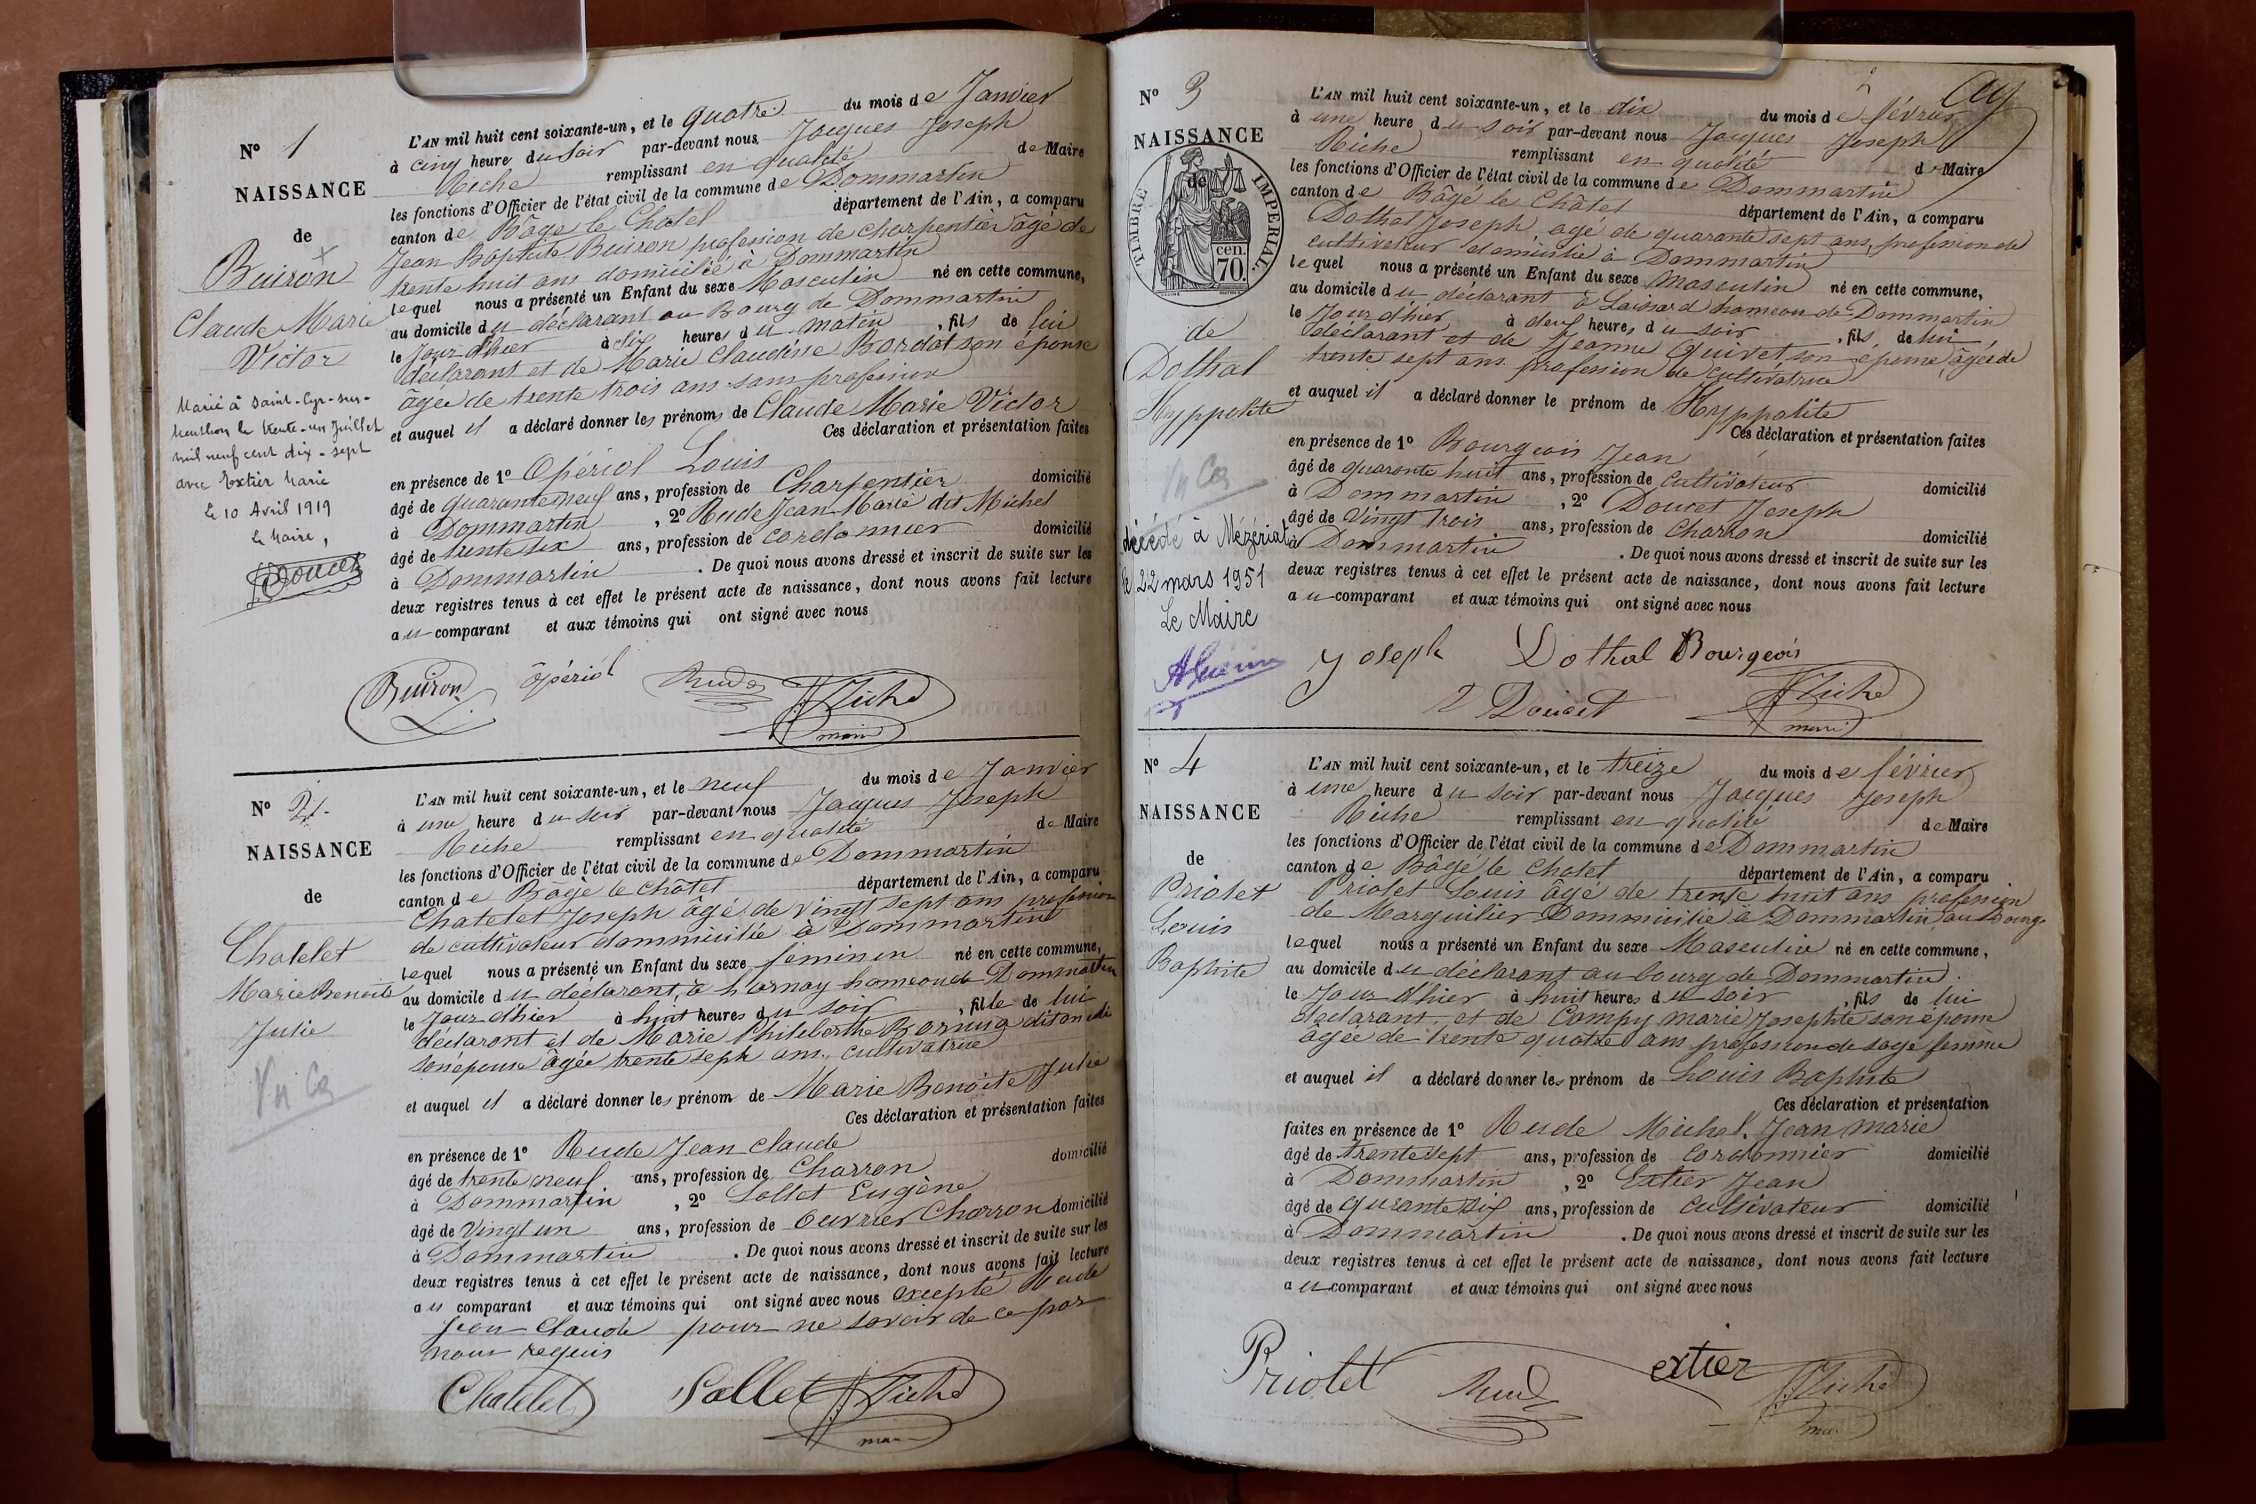 N° 1
NAISSANCE
de
Buiron
Claude Marie
Victor
Marié à Saint-Cyr-sur-
Menthon le trente-un Juillet
mil neuf cent dix-sept
avec Extier Marie
le 10 Avril 1919
Le Maire,
Doucet
L'AN mil huit cent soixante-un, et le quatre du mois de Janvier
à cinq heure du soir par-devant nous Jacques Joseph
Riche remplissant en qualité de Maire
les fonctions d'Officier de l'état civil de la commune de Dommartin
canton de Bâgé le Chatel département de l'Ain, a comparu
Jean Baptiste Buiron profession de charpentier âgé de
trente huit ans domicilié à Dommartin
lequel nous a présenté un Enfant du sexe Masculin né en cette commune,
au domicile du déclarant au Bourg de Dommartin
le Jour d'hier à dix heures du matin, fils de lui
déclarant et de Marie Claudine Bordat son épouse
âgée de trente trois ans sans profession
et auquel il a déclaré donner les prénoms de Claude Marie Victor
Ces déclaration et présentation faites
en présence de 1° Opériol Louis
âgé de quarante neuf ans, profession de Charpentier domicilié
à Dommartin, 2° Rude Jean Marie dit Michel
âgé de trente six ans, profession de cordonnier domicilié
à Dommartin. De quoi nous avons dressé et inscrit de suite sur les
deux registres tenus à cet effet le présent acte de naissance, dont nous avons fait lecture
au comparant et aux témoins qui ont signé avec nous
Buiron opériol Rude Riche
maire
N° 2
NAISSANCE
de
Chatelet
Marie Benoite
Julie
L'AN mil huit cent soixante-un, et le neuf du mois de Janvier
à une heure du soir par-devant nous Jacques Joseph
Riche remplissant en qualité de Maire
les fonctions d'Officier de l'état civil de la commune de Dommartin
canton de Bagé le Chatel département de l'Ain, a comparu
Chatelet Joseph âgé de vingt sept ans profession
de cultivateur dommicilié à Dommartin
lequel nous a présenté un Enfant du sexe féminin né en cette commune,
au domicile du déclarant, à hameau de Dommartin
le Jour d'hier à huit heures du soir, fille de lui
déclarant et de Marie Philiberthe
son épouse âgée trente sept ans, cultivatrice
et auquel il a déclaré donner les prénom de Marie Benoite Julie
Ces déclaration et présentation faites
en présence de 1° Rude Jean Claude
âgé de trente neuf ans, profession de Charron domicilié
à Dommartin, 2° Sallet Eugène
âgé de Vingt un ans, profession de Ouvrier Charron domicilié
à Dommartin. De quoi nous avons dressé et inscrit de suite sur les
deux registres tenus à cet effet le présent acte de naissance, dont nous avons fait lecture
au comparant et aux témoins qui ont signé avec nous excepté Rude
Jean Claude pour ne savoir de ce par
nous requis
Chatelet Sallet Riche
maire
N° 3
NAISSANCE
TIMBRE IMPERIAL
cen. 70.
de
de
Dothal
Hyppolite
décédé à Mézériat
le 22 mars 1951
Le Maire
AGuerin
L'AN mil huit cent soixante-un, et le dix du mois de février
à une heure du soir par-devant nous Jacques Joseph
Riche remplissant en qualité de Maire
les fonctions d'Officier de l'état civil de la commune de Dommartin
canton de Bâgé le Châtel département de l'Ain, a comparu
Dothal Joseph âgé de quarante sept ans, profession de
cultivateur domicilié à Dommartin
lequel nous a présenté un Enfant du sexe masculin né en cette commune,
au domicile du déclarant à Loissard hameau de Dommartin
le Jour d'hier à deux heures du soir, fils de lui
déclarant et de Jeanne Guivet son épouse, âgée de
trente sept ans profession de cultivatrice
et auquel il a déclaré donner le prénom de Hyppolite
Ces déclaration et présentation faites
en présence de 1° Bourgeois Jean
âgé de quarante huit ans, profession de Cultivateur domicilié
à Dommartin, 2° Doucet Joseph
âgé de Vingt trois ans, profession de Charron domicilié
à Dommartin. De quoi nous avons dressé et inscrit de suite sur les
deux registres tenus à cet effet le présent acte de naissance, dont nous avons fait lecture
au comparant et aux témoins qui ont signé avec nous
Joseph Dothal Bourgeois
Doucet Riche
maire
N° 4
NAISSANCE
de
Priolet
Louis
Baptiste
L'AN mil huit cent soixante-un, et le treize du mois de février
à une heure du soir par-devant nous Jacques Joseph
Riche remplissant en qualité de Maire
les fonctions d'Officier de l'état civil de la commune de Dommartin
canton de Bâgé le Chatel département de l'Ain, a comparu
Priolet Louis âgé de trente huit ans profession
de Marguilier Dommicilié à Dommartin au Bourg
lequel nous a présenté un Enfant du sexe Masculin né en cette commune,
au domicile du déclarant au bourg de Dommartin
le Jour d'hier à huit heures du soir, fils de lui
déclarant et de Compy marie Josephte son épouse
âgée de trente quatre ans profession de sage femme
et auquel il a déclaré donner les prénom de Louis Baptiste
Ces déclaration et présentation
faites en présence de 1° Rude Michel Jean marie
âgé de trente sept ans, profession de Cordonnier domicilié
à Dommartin, 2° Extier Jean
âgé de qurante six ans, profession de cultivateur domicilié
à Dommartin. De quoi nous avons dressé et inscrit de suite sur les
deux registres tenus à cet effet le présent acte de naissance, dont nous avons fait lecture
au comparant et aux témoins qui ont signé avec nous
Priolet Rude extier Riche
maire